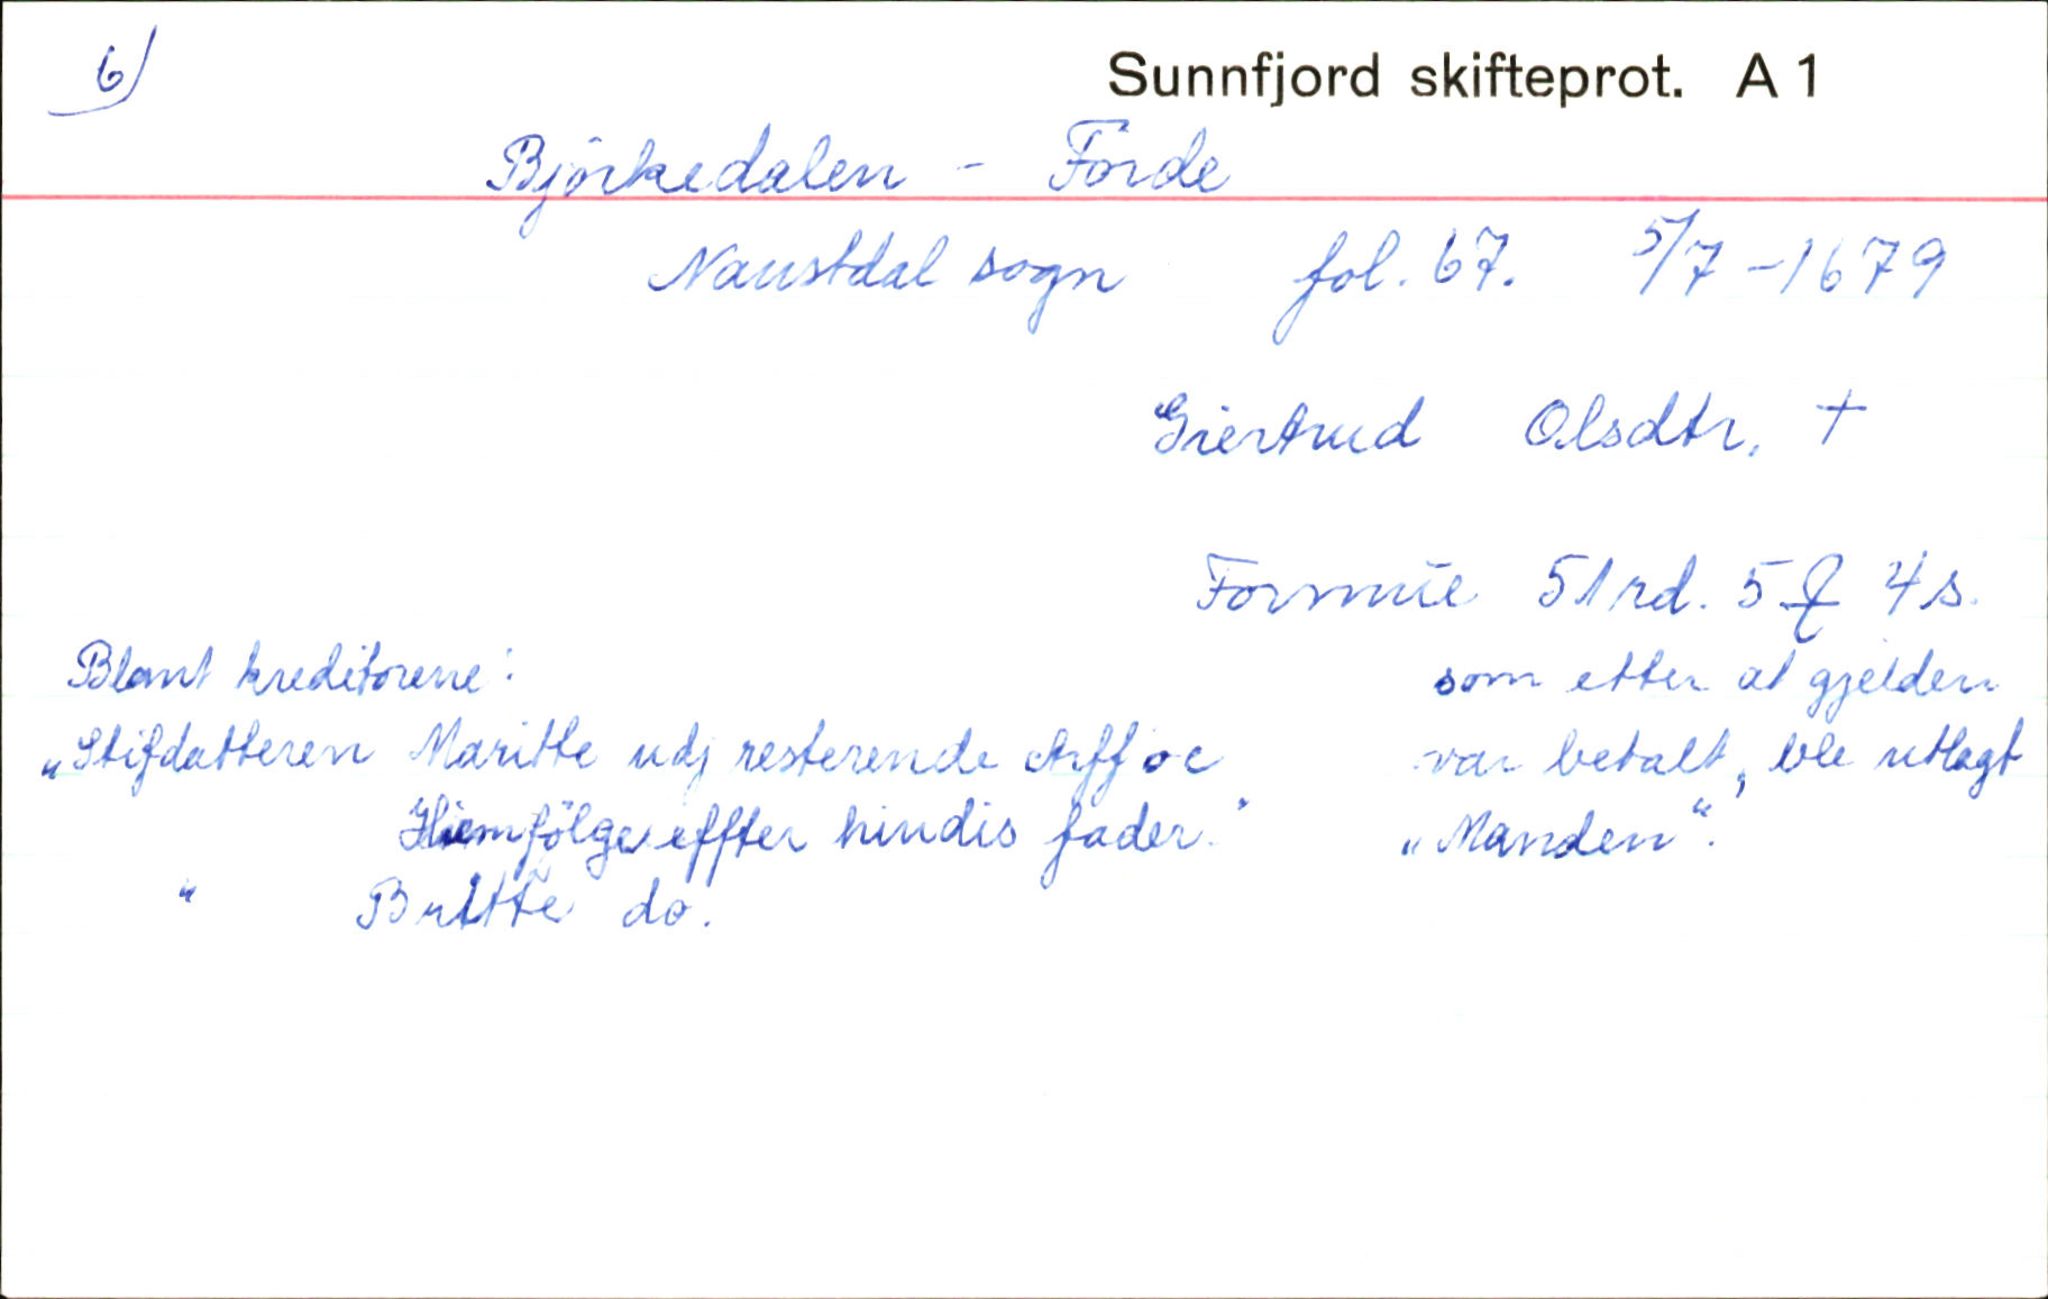 6)
Sunnfjord skifteprot. A 1
Björkedalen - Förde
Naustdal sogn fol. 67. 5/7 - 1679
Giertrud Olsdtr. †
Formue 51 rd. 5 4 s.
som etter at gjelden
var betalt, ble utlagt
„Manden“.
Blant kreditorene:
„Stifdatteren Maritte udj resterende Arff oc
Hiemfölge effter hindis fader."
" Britte do.